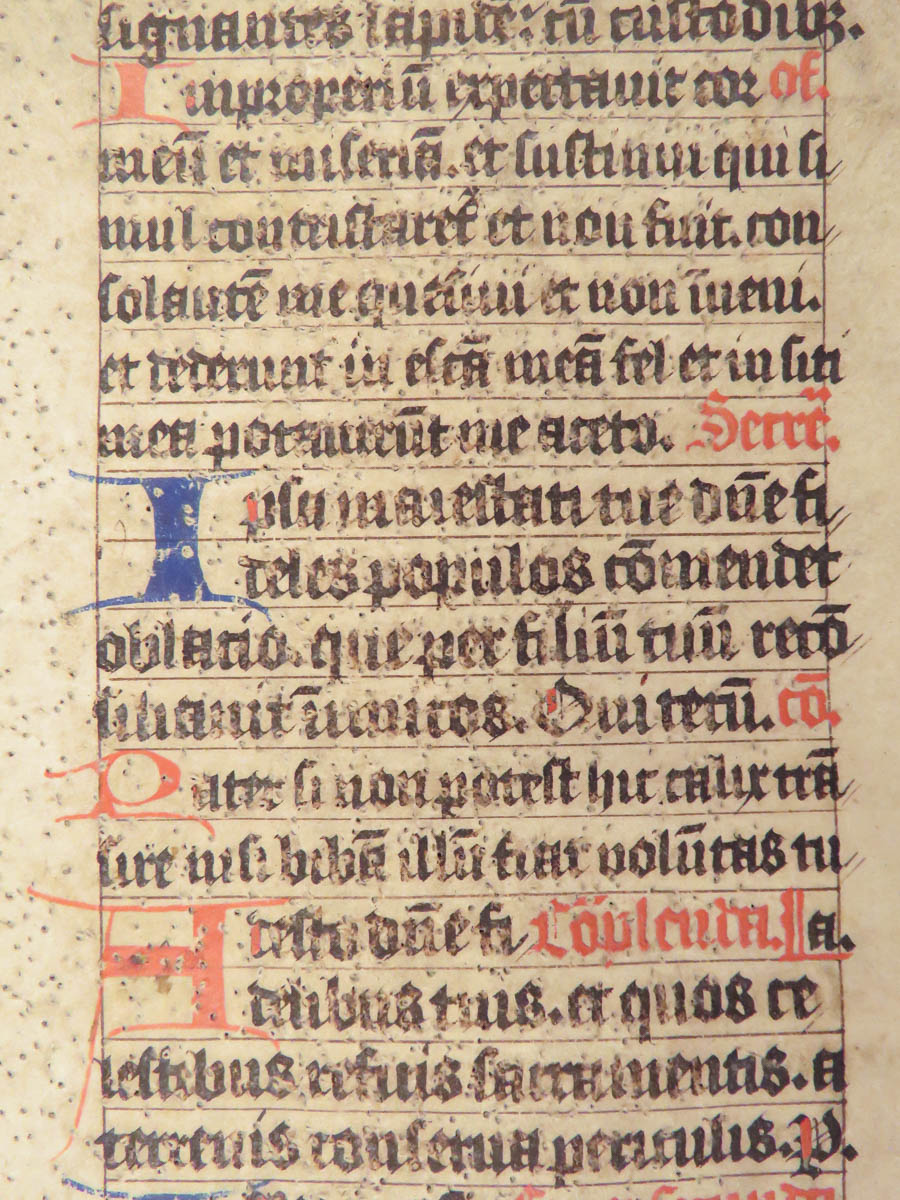 signantes lapidē: cū custodibꝫ.
Inproperiū expectauit cor of.
meū et miseriā. et sustinui qui si
mul contristaretᷣ et non fuit. con
solantē me quesiui et non īueni.
et dederunt in escā meā fel et in siti
mea potauerūt me aceto. Secreᷓ.
Ipsu maiestati tue dn̄e fi
deles populos cōmendet
oblatio. que per filiū tuū recō
siliauit īimicos. Qui tecū. cō.
Pater si non potest hic calix trā
sire nisi bibā illū fiat volūtas tu
Adesto dn̄e fi Cōplenda. a.
delibus tuis. et quos ce
lestibus reficis sacramentis. a
terrenis conserua periculis. P.